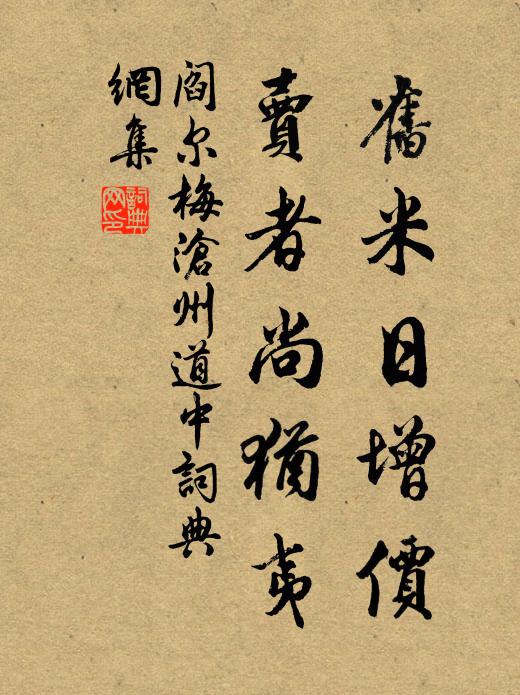 舊米日增價
賣者尚猶夷
閻尔梅滄州道中詞典
網集
詞典
网印